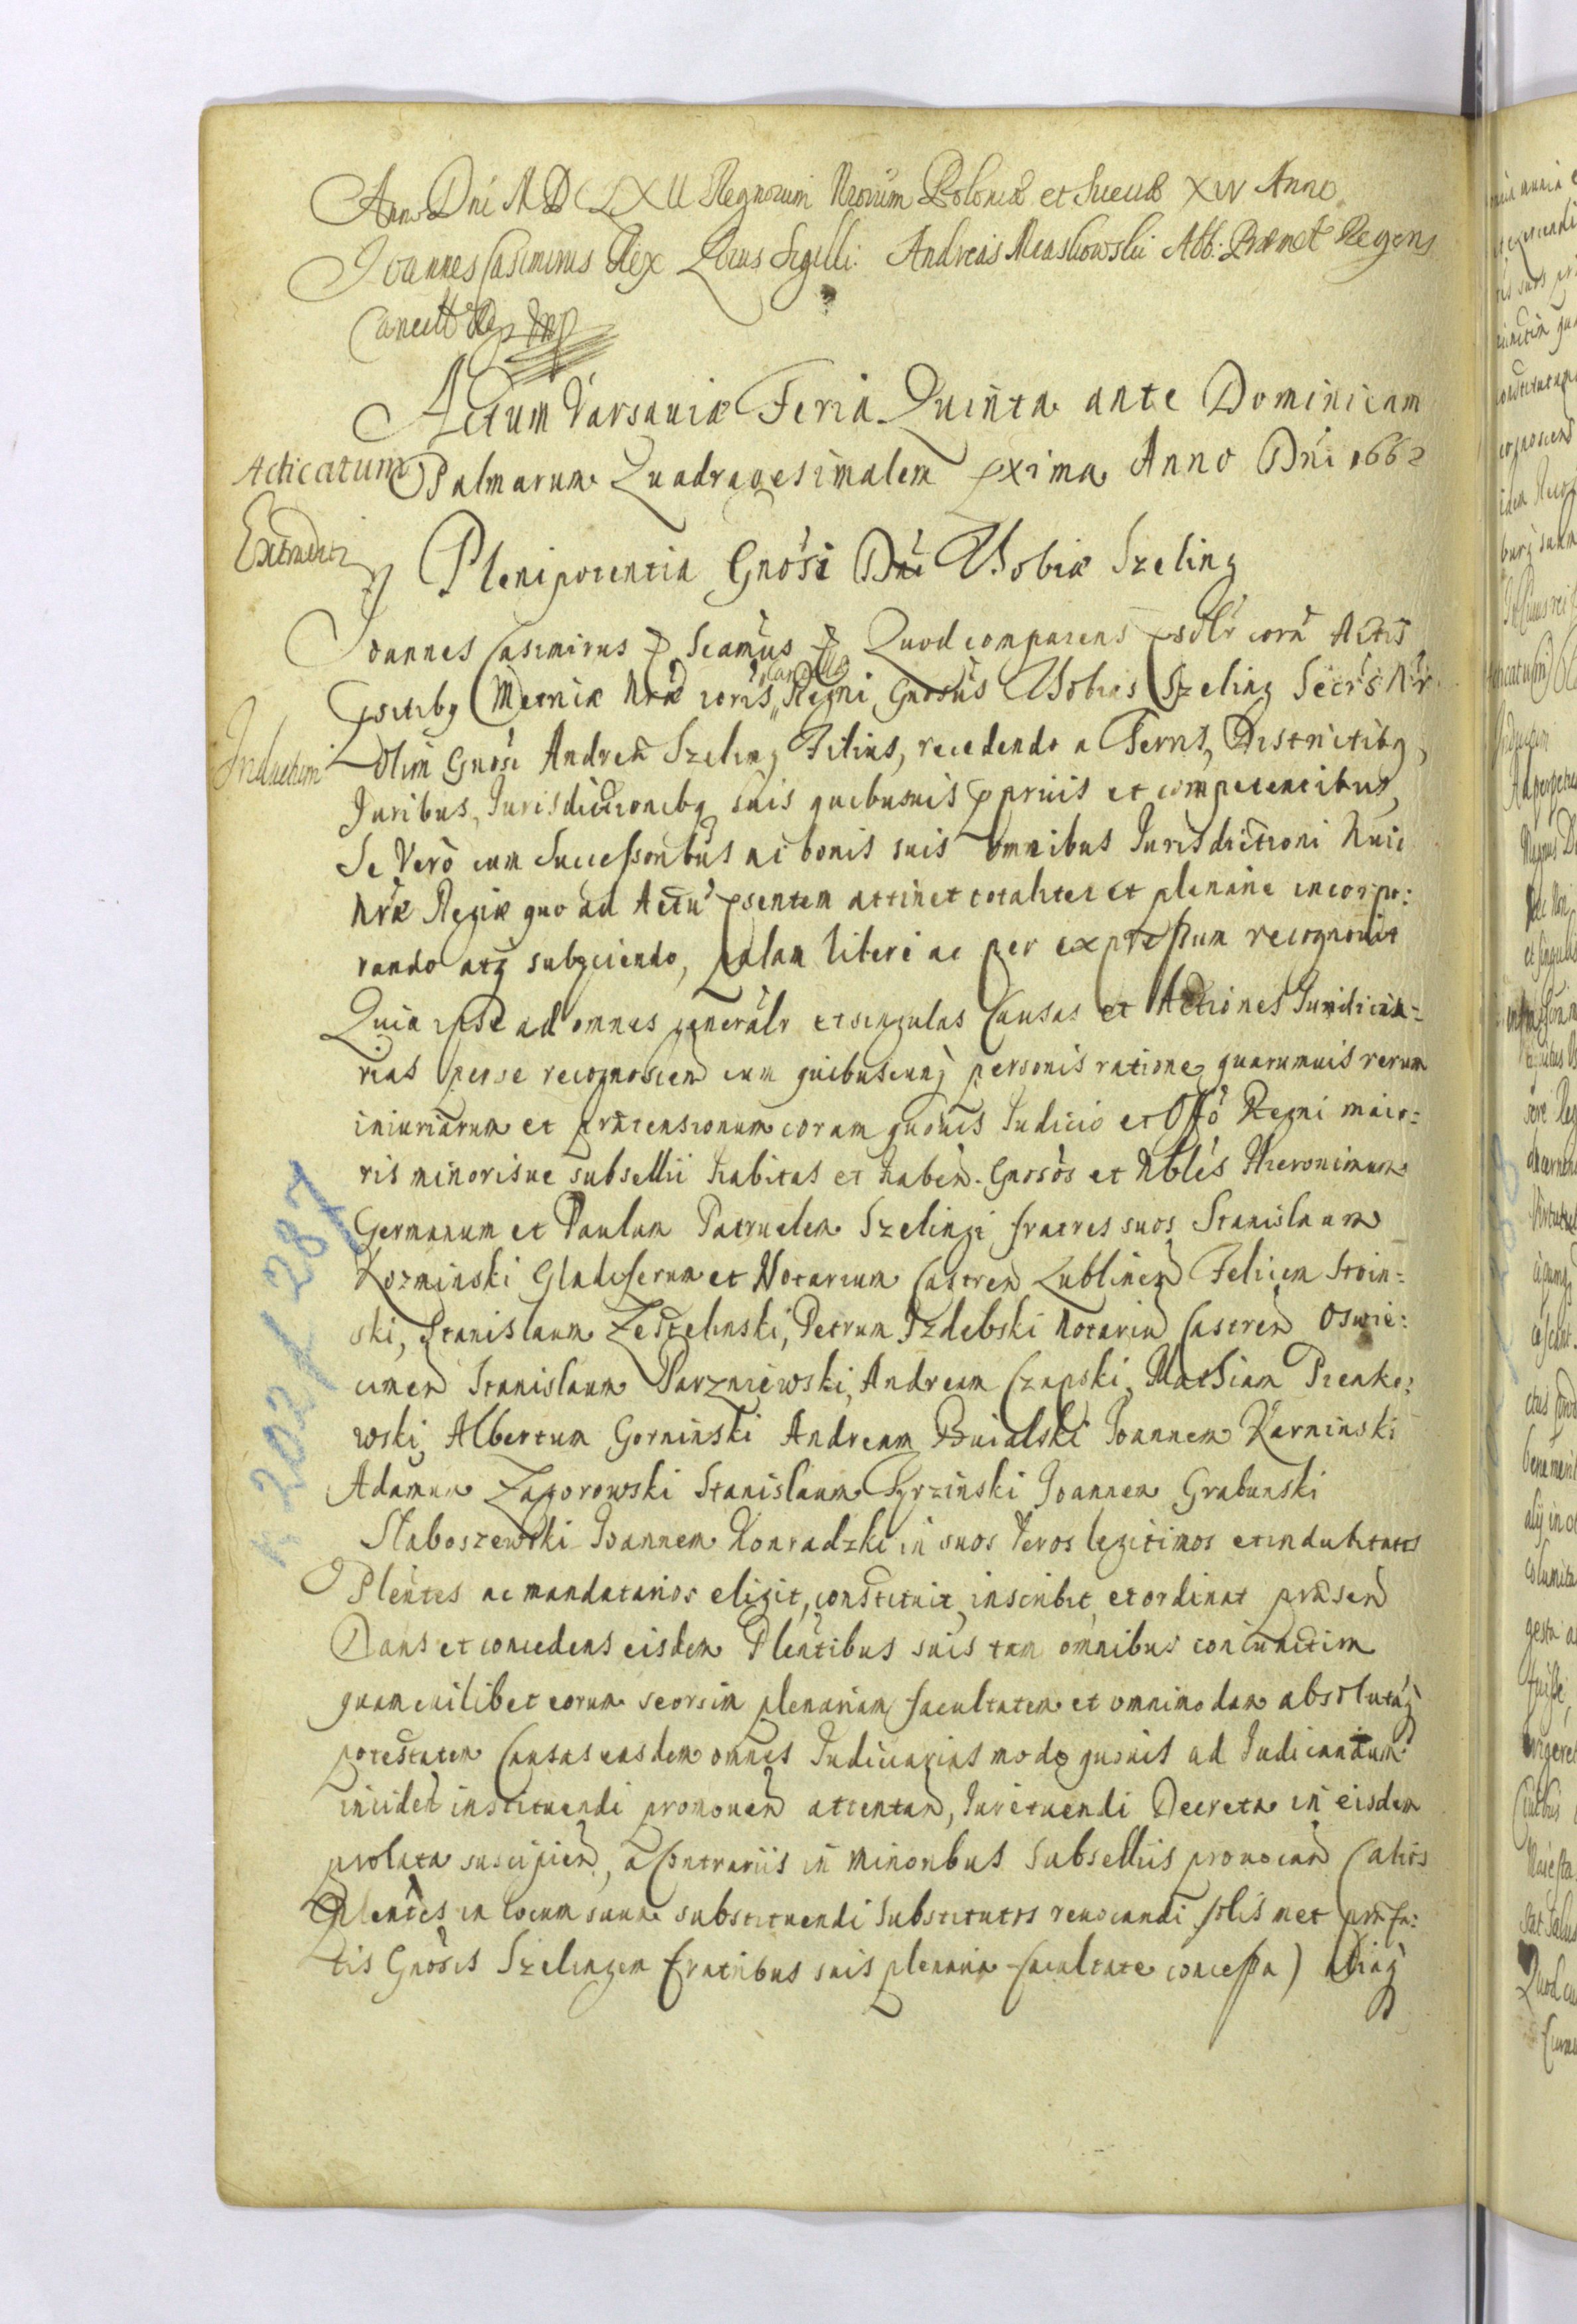 Anno Dni MDCLXII Regnorum Nrorum Poloniæ et Sueciæ XIV Anno
Joannes Casimirus Rex Locus Sigilli: Andreas Miaskowski Abb: Præmet Regens
Cancell
Actum Varsaviæ Feria Quinta ante Dominicam
Acticatum Palmarum Quadragesimalem pxima Anno Dni 1662
Extradit
Plenipotentia Gnosi Dni Tobiæ Szeling
Joannes Casimirus Scamus Quod comparens psolr corā Actis
psntibg Metricæ Nræ ioris Cancellæ Regni, Gnosus Tobias Szeling Secrs Nr
Inductum Olim Gnosi Andreæ Szeling Filius, recedendo a Terris, Districtibg,
Juribus, Jurisdictionibg suis quibusuis ppriis et competentibus,
Se Vero cum Successoribus ac bonis suis omnibus Jurisdictioni huic
Nræ Regiæ quo ad Actū psentem attinet totaliter et plenarie incorpo:
rando atq subyciendo, palam libere ac per expressum recognouit
Quia ipse ad omnes generalr et singulas Causas et Actiones Juridicia=
rias per se recognoscen cum quibuscunq personis ratione quarumuis rerum
iniuriarum et prætensionum coram quouis Judicio et Offo Regni maio=
ris minorisue subsellii habitas et haben. Gnosos et Nbles Hieronimum
Germanum et Paulum Patruelem Szelingi fratres suos Stanislaum
Kozminski Gladiferum et Notarium Castren Lublinen Felicem Stoin=
ski, Stanislaum Zestelinski, Petrum Izdebski Notariū Castren Oswie:
cimen Stanislaum Parzniewski, Andream Czapski, Mathiam Pienko:
wski, Albertum Gorninski Andream Buialski Joannem Karninski
Adamum Zagorowski Stanislaum Pyrzinski Joannem Grabunski
Słaboszewski Joannem Konradzki in suos Veros legitimos et indubitatos
Plentes ac mandatarios eligit, constituit, inscribit, et ordinat præsen
Dans et concedens eisdem Plentibus suis tam omnibus coniunctim
quam cuilibet eorum seorsim plenariam facultatem et omnimodam absolutāq
potestatem Causas easdem omnes Judiciarias modo quouis ad Judicandum
inciden instituendi promouen attentan, Jure tuendi Decreta in eisdem
prolata suscipien, a Contrariis in minoribus Subselliis prouocan (alios
Plentes in locum suum substituendi substitutos reuocandi solis met præfa:
tis Gnosis Szelingen fratribus suis plenaria facultate concessa) aliaq
K 202 / 287